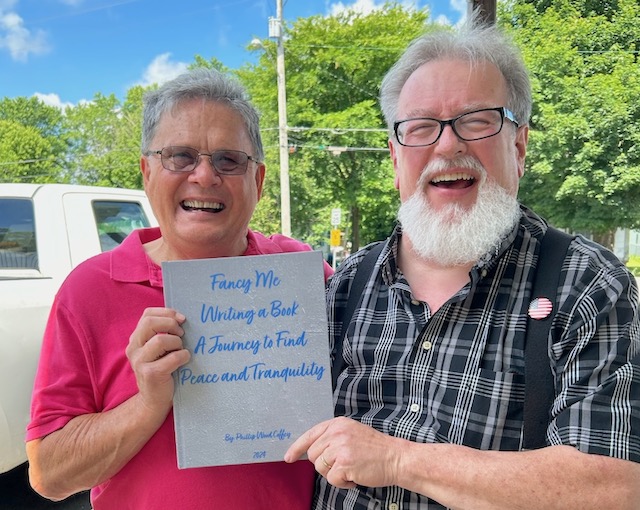 Fancy Me
Writing a Book
A Journey to Find
Peace and Tranquility
By: Phillip Wood Coffey
2024